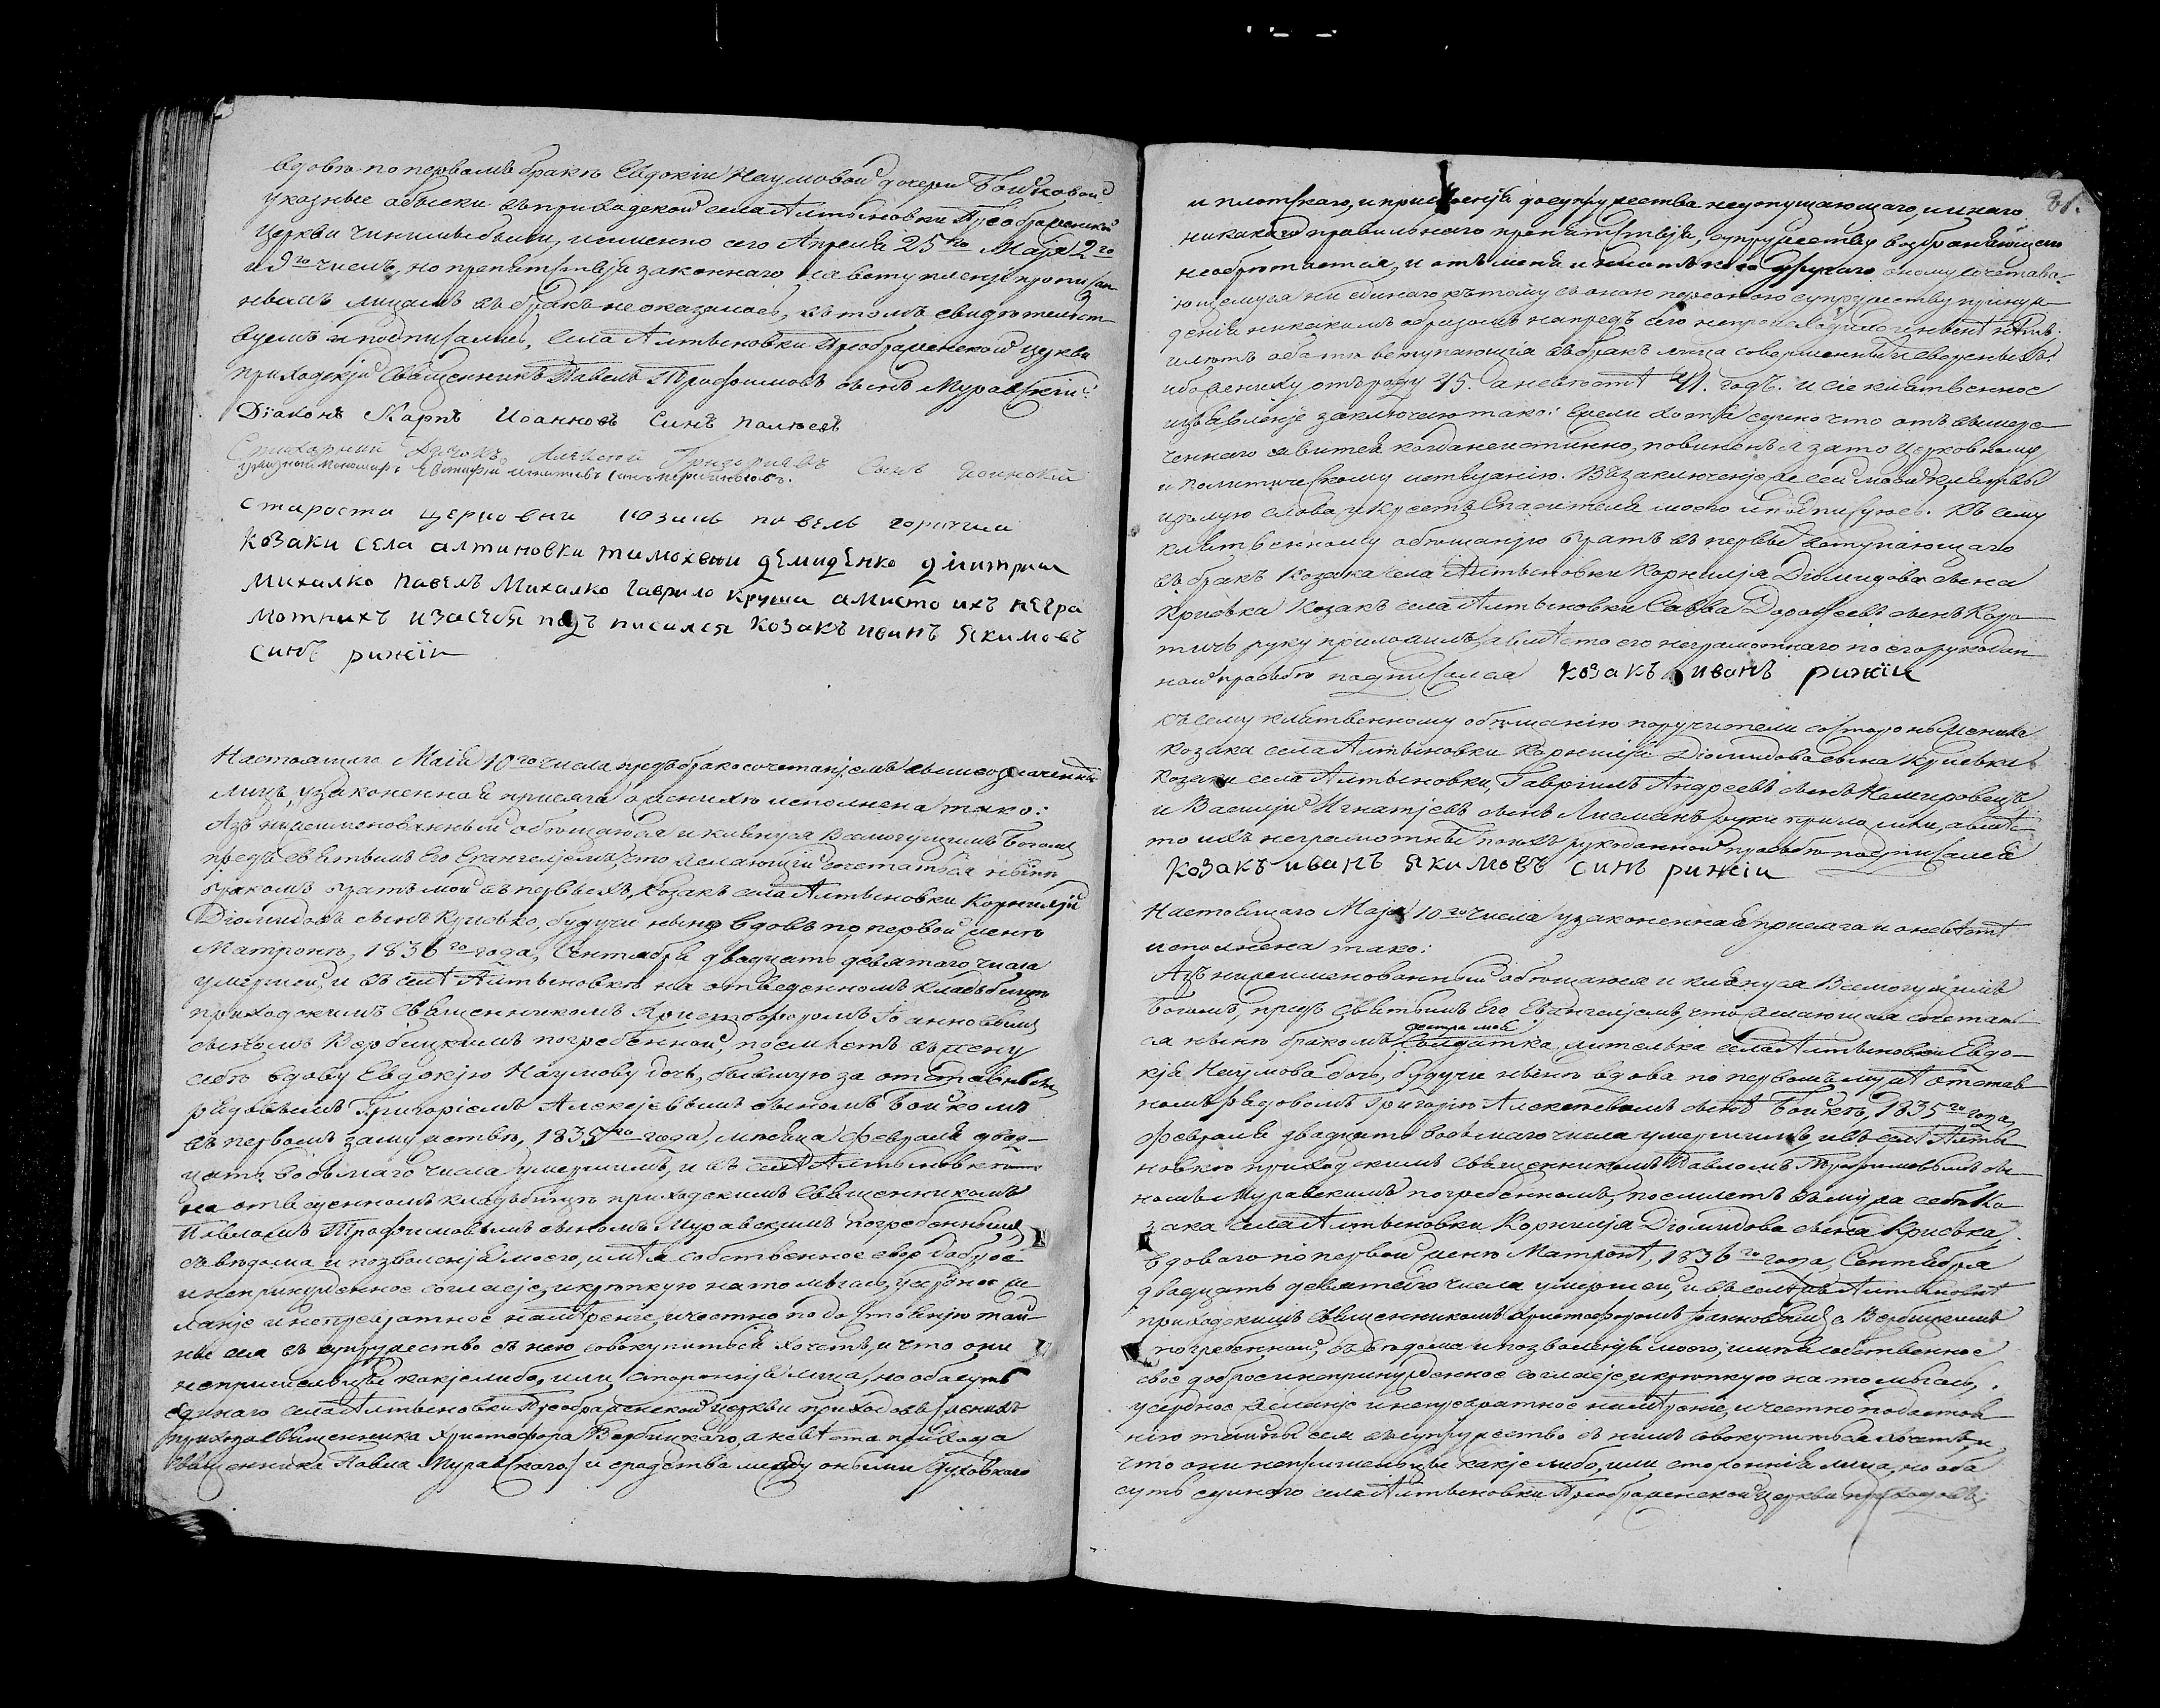 вдовѣ по первомъ бракѣ Евдокіи Наумовой дочери Бойковой
указные обыски въ приходской села Алтыновки Преображенской
церкви чинимы были, именно сего Апреля 25го Маія 2го
и 9го числъ, но препятствія законнаго на вступленіе прописан
нымъ лицамъ въ бракъ не оказалось, въ томъ свидѣтельст
вуемъ и подписались, села Алтыновки Преображенской церкви
приходскій Священникъ Павелъ Трофимовъ сынъ Муравскій
Діаконъ Карпъ Иоанновъ Синъ
Стихарный Дячокъ Алексѣй Григориевъ Сынъ
староста церковни козакъ павелъ
козаки села алтиновки тимохвии демиденко дмитрии
михалко павелъ михалко гаврило круша амисто ихъ негра
мотнихъ изасебя подъ писался козакъ иванъ якимовъ
синъ рижіи
Настоящаго Маія 10го числа предъ бракосочетаніемъ вышеозначенныхъ
лицъ, узаконенная присяга о женихѣ исполнена тако:
Азъ нижеименованный обѣщаюся и клянуся Всемогущимъ Богомъ
предъ святымъ Его Евангеліемъ, что желающій сочетатися нынѣ
бракомъ братъ мой въ первыхъ, козакъ села Алтыновки Корнилій
Діомидовъ сынъ Криевко, будучи нынѣ вдовъ по первой женѣ
Матронѣ, 1836го года, Сентября двадцать девятаго числа
умершей, и въ селѣ Алтыновкѣ на отведенномъ кладбищѣ
приходскимъ Священникомъ Христофоромъ Іоанновымъ
сыномъ Вербицкимъ погребенной, поемлетъ въ жену
себѣ вдову Евдокію Наумову дочь, бывшую за отставнымъ
рядовымъ Григоріемъ Алексіевымъ сыномъ Бойкомъ
въ первомъ замужествѣ, 1835го года, мѣсяца Февраля двад-
цать восьмаго числа умершимъ, и въ селѣ Алтыновкѣ
на отведенномъ кладбищѣ приходскимъ Священникомъ
Павломъ Трофимовымъ сыномъ Муравскимъ погребеннымъ
съ вѣдома и позволенія моего, имѣя собственное свое доброе
и непринужденное согласіе, и крѣпкую на то мысль, усердное же
ланіе и непревратное намѣреніе, и честно по достоянію тай
ны сея въ супружество съ нею совокупитися хочетъ, и что они
не пришельцы какіе либо, или сторонніе лица, но оба суть
единаго села Алтыновки Преображенской церкви приходовъ женихъ
прихода священника Христофора Вербицкаго, а невѣста прихода
священника Павла Муравскаго, и сродства между оными духовнаго
31.
и плотскаго, и присвоенія до супружества недопущающаго, и инаго
никакого правильнаго препятствія, супружеству возбраняющаго
не обрѣтается, и отъ мене и никого другаго оному сочетава-
ющемуся ни единаго къ тому съ оною персоною супружеству принуж
денія никакимъ образомъ напредъ сего не происходило и нынѣ нѣтъ.
и лѣтъ оба вступающія въ бракъ лица совершенны
и бо жениху отъ роду 45. а невѣстѣ 41. годъ. и сіе клятвенное
изъявленіе заключаю тако: ежели хотя едино что отъ вышере
ченнаго явится когда неистинно, повиненъ я за то церковному
и политическому истязанію. Въ заключеніе же сей моей клятвы
цѣлую слова и Крестъ Спасителя моего и подписуюсь. Къ сему
клятвенному обѣщанію братъ въ первыхъ вступающаго
въ бракъ Козака села Алтыновки Корнилія Діомидова сына
Криевка Козакъ села Алтыновки Савва Дорофеевъ сынъ Коро
тичъ руку приложилъ, а вмѣсто его неграмотнаго по его рукодан
ной прозьбѣ подписался козакъ иванъ рижіи
Къ сему клятвенному обѣщанію поручители со стороны жениха
козака села Алтыновки Корнилія Діомидова сына Криевки
козаки села Алтыновки, Гавріилъ Андреевъ сынъ Немировецъ
и Василій Игнатіевъ сынъ Лисманъ руки приложили, а вмѣс
то ихъ неграмотны по ихъ рукоданной прозьбѣ подписался
козакъ иванъ якимовъ синъ рижіи
Настоящаго Маія 10го числа узаконенная присяга и о невѣстѣ
исполнена тако:
Азъ нижеименованный обѣщаюся и клянуся Всемогущимъ
Богомъ, предъ святымъ Его Евангеліемъ, что желающая сочетати
ся нынѣ бракомъ сестра моя Солдатка, жителька села Алтыновки Евдо-
кія Наумова дочь, будучи нынѣ вдова по первомъ мужѣ отстав
номъ рядовомъ Григорію Алексѣевомъ сынѣ Бойкѣ, 1835го года,
Февраля двадцать восьмаго числа умершимъ, и въ селѣ Алты
новкѣ приходскимъ священникомъ Павломъ Трофимовымъ сы
номъ Муравскимъ погребенномъ, поемлетъ въ мужа себѣ Ко
зака села Алтыновки Корнилія Діомидова сына Криевка,
вдоваго по первой женѣ Матронѣ, 1836го года, Сентября
двадцать девятаго числа умершей, и въ селѣ Алтыновкѣ
приходскимъ священникомъ Христофоромъ Іоанновымъ с Вербицкимъ
погребенной, съ вѣдома и позволенія моего, имѣя собственное
свое доброе и непринужденное согласіе, и крѣпкую на то мысль,
усердное желаніе и непревратное намѣреніе, и честно по достоя
нію тайны сея въ супружество съ нимъ совокупитися хочетъ, и
что они не пришельцы какіе либо, или сторонніе лица, но оба
суть единаго села Алтыновки Преображенской церкви приходовъ